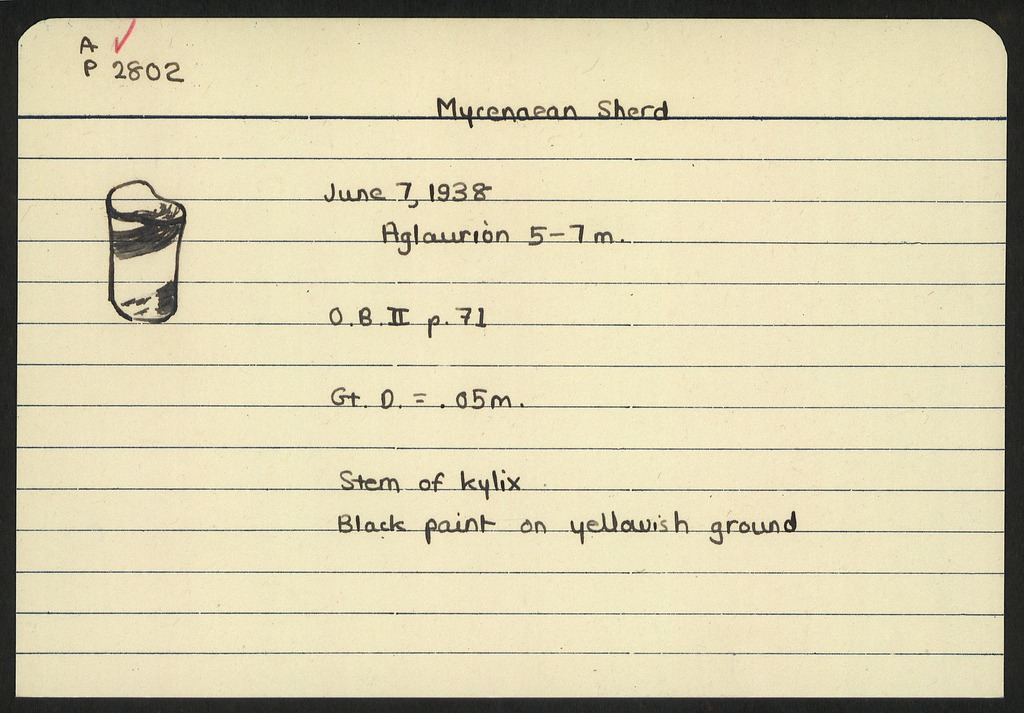 A
P 2802
Mycenaean Sherd
June 7, 1938
Aglaurion 5-7 m.
O.B. II p. 71
Gt. D. = .05m.
Stem of kylix
Black paint on yellowish ground